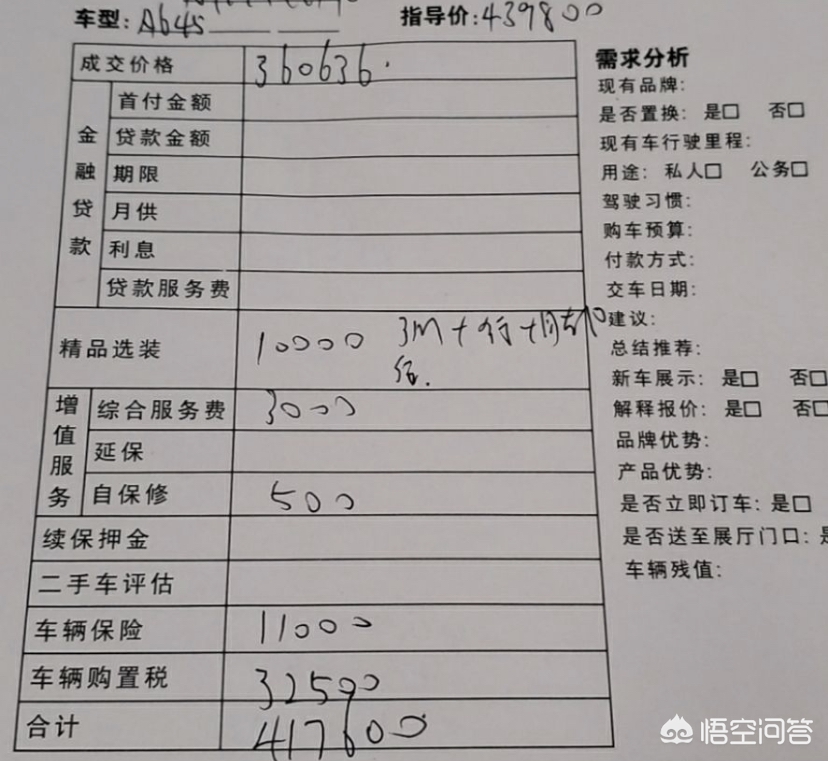 车型: A645 指导价: 439800
成交价格 360636.
金融贷款
首付金额
贷款金额
期限
月供
利息
贷款服务费
精品选装 10000 3M+行+
增值服务
综合服务费 3000
延保
自保修 500
续保押金
二手车评估
车辆保险 11000
车辆购置税 32500
合计 417600
需求分析
现有品牌:
是否置换: 是□ 否□
现有车行驶里程:
用途: 私人□ 公务□
驾驶习惯:
购车预算:
付款方式:
交车日期:
建议:
总结推荐:
新车展示: 是□ 否□
解释报价: 是□ 否□
品牌优势:
产品优势:
是否立即订车: 是□
是否送至展厅门口:
车辆残值:
悟空问答